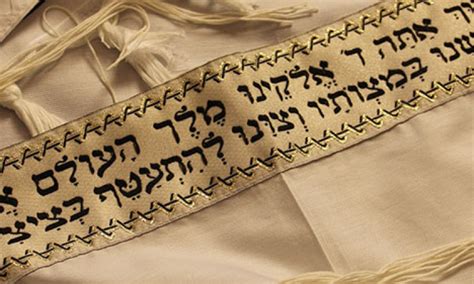 ךְ אַתָּה ד' אֱלֹקֵינוּ מֶלֶךְ הָעוֹלָם אֲ
שָׁנוּ בְּמִצְוֹתָיו וְצִוָּנוּ לְהִתְעַטֵּף בְּצִיצִ